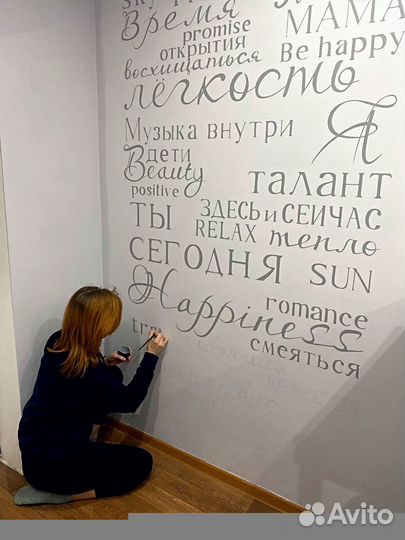 SKY
Время
promise
МАМА
открытия
Be happy
восхищаться
лёгкость
Музыка внутри
Я
дети
Beauty
талант
positive
ТЫ
ЗДЕСЬ и СЕЙЧАС
RELAX тепло
СЕГОДНЯ
SUN
Happiness
romance
tra
смеяться
Avito